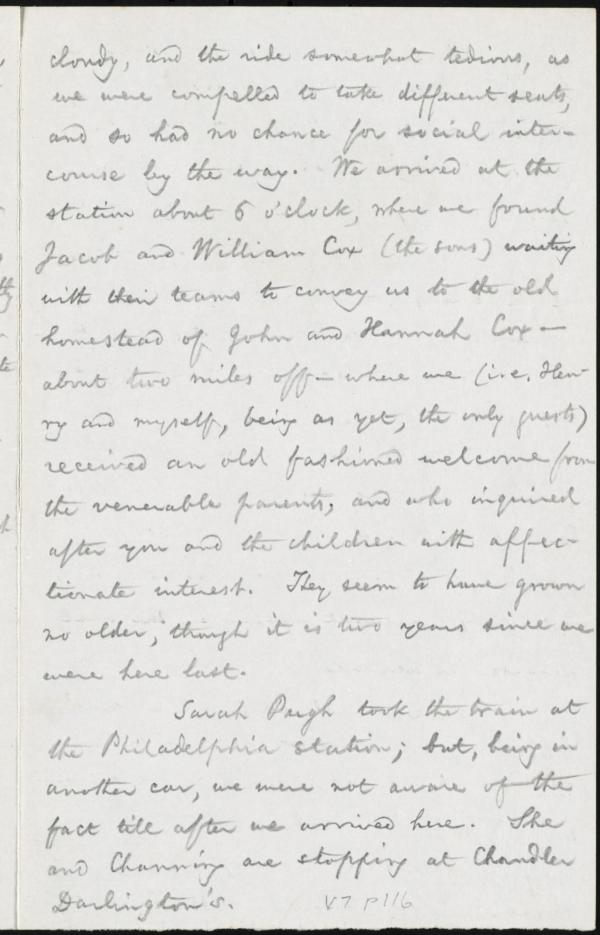 cloudy, and the ride somewhat tedious, as
we were compelled to take different seats,
and so had no chance for social inter-
course by the way. We arrived at the
station about 6 o'clock, where we found
Jacob and William Cox (the sons) waiting
with their teams to convey us to the old
homestead of John and Hannah Cox —
about two miles off — where we (i.e. Hen-
ry and myself, being as yet, the only guests)
received an old fashioned welcome from
the venerable parents, and who inquired
after you and the children with affec-
tionate interest. They seem to have grown
no older, though it is two years since we
were here last.
Sarah Pugh took the train at
the Philadelphia station; but, being in
another car, we were not aware of the
fact till after we arrived here. She
and Channing are stopping at Chandler
Darlington's.
V7 p116